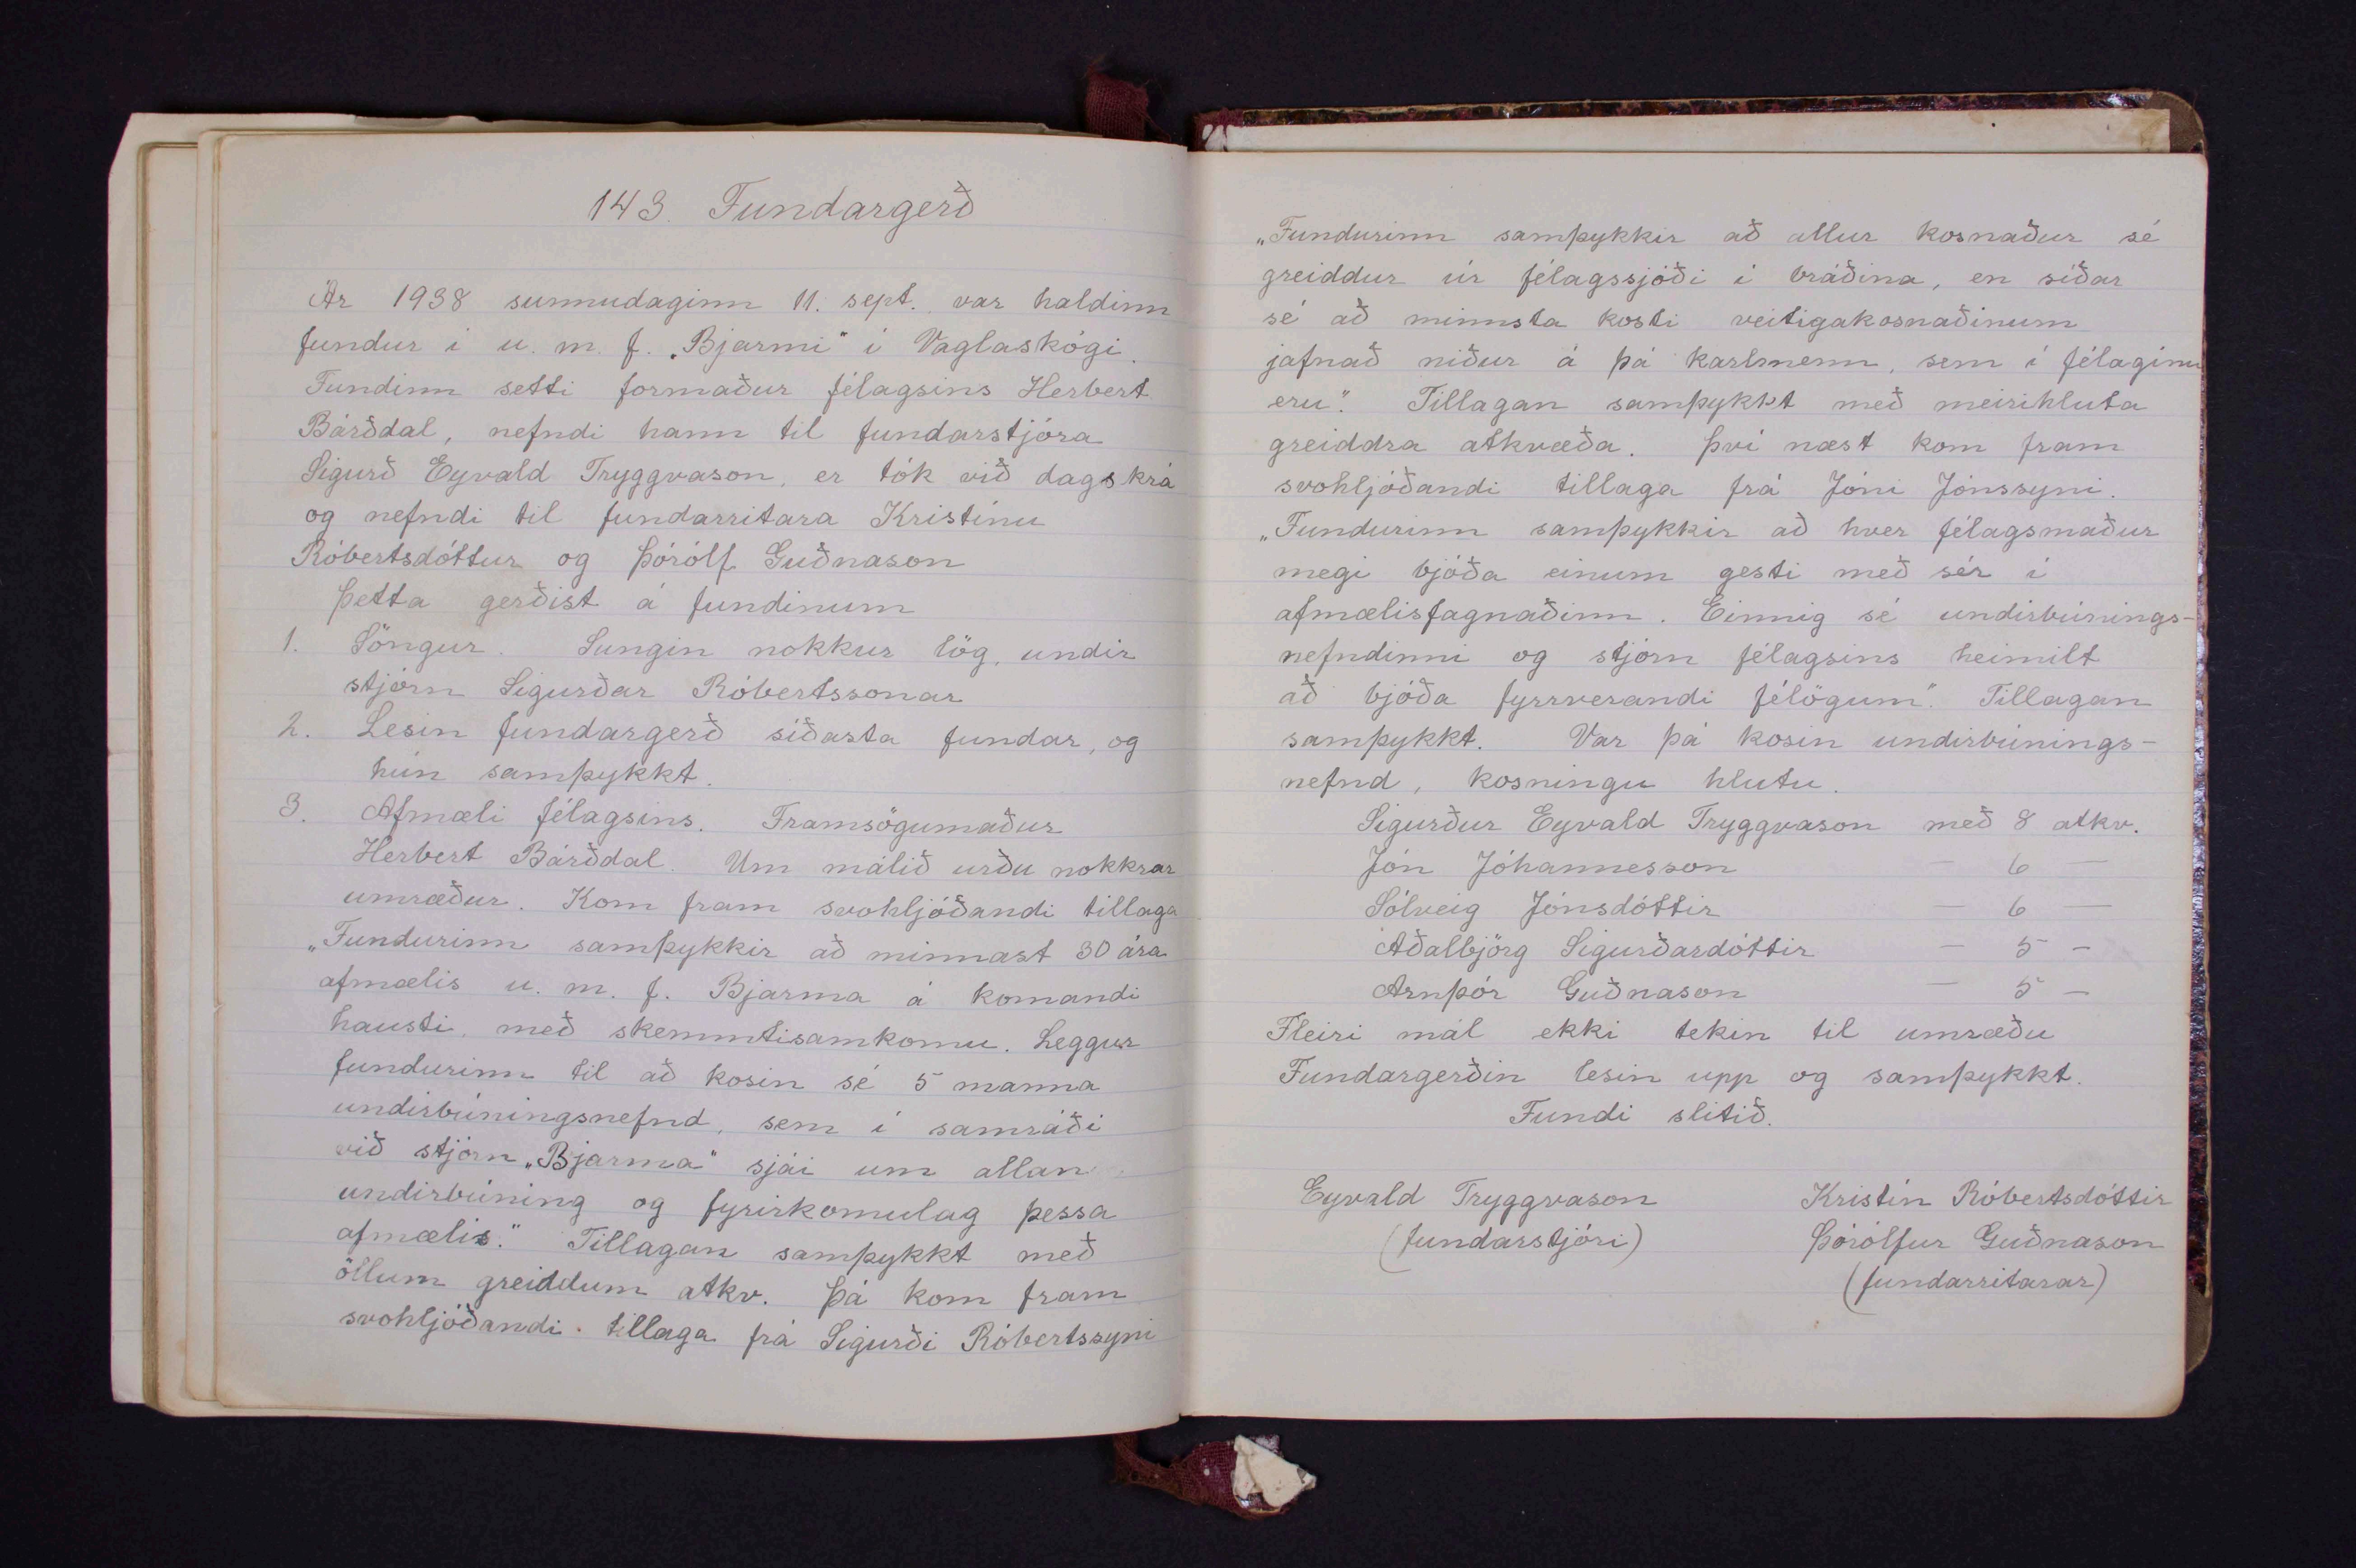 143. Fundargerð
Ár 1938 sunnudaginn 11. sept. var haldinn
fundur í u. m. f. „Bjarmi“ í Vaglaskógi.
Fundinn setti formaður félagsins Herbert
Bárðdal, nefndi hann til fundarstjóra
Sigurð Eyvald Tryggvason, er tók við dagskrá
og nefndi til fundarritara Kristínu
Róbertsdóttur og Þórólf Guðnason
Þetta gerðist á fundinum
1. Söngur. Sungin nokkur lög, undir
stjórn Sigurðar Róbertssonar
2. Lesin fundargerð síðasta fundar, og
hún samþykkt.
3. Afmæli félagsins. Framsögumaður
Herbert Bárðdal. Um málið urðu nokkrar
umræður. Kom fram svohljóðandi tillaga
„Fundurinn samþykkir að minnast 30 ára
afmælis u. m. f. Bjarma á komandi
hausti, með skemmtisamkomu. Leggur
fundurinn til að kosin sé 5 manna
undirbúningsnefnd, sem í samráði
við stjórn „Bjarma“ sjái um allan
undirbúning og fyrirkomulag þessa
afmælis.“ Tillagan samþykkt með
öllum greiddum atkv. Þá kom fram
svohljóðandi tillaga frá Sigurði Róbertssyni
„Fundurinn samþykkir að allur kosnaður sé
greiddur úr félagssjóði í bráðina, en síðar
sé að minnsta kosti veitigakosnaðinum
jafnað niður á þá karlmenn, sem í félaginu
eru.“ Tillagan samþykkt með meirihluta
greiddra atkvæða. Því næst kom fram
svohljóðandi tillaga frá Jóni Jónssyni.
„Fundurinn samþykkir að hver félagsmaður
megi bjóða einum gesti með sér í
afmælisfagnaðinn. Einnig sé undirbúnings-
nefndinni og stjórn félagsins heimilt
að bjóða fyrrverandi félögum“. Tillagan
samþykkt. Var þá kosin undirbúnings-
nefnd, kosningu hlutu.
Sigurður Eyvald Tryggvason með 8 atkv.
Jón Jóhannesson — 6 —
Sólveig Jónsdóttir — 6 —
Aðalbjörg Sigurðardóttir — 5 —
Arnþór Guðnason — 5 —
Fleiri mál ekki tekin til umræðu
Fundargerðin lesin upp og samþykkt.
Fundi slitið.
Eyvald Tryggvason
(fundarstjóri)
Kristín Róbertsdóttir
Þórólfur Guðnason
(fundarritarar)